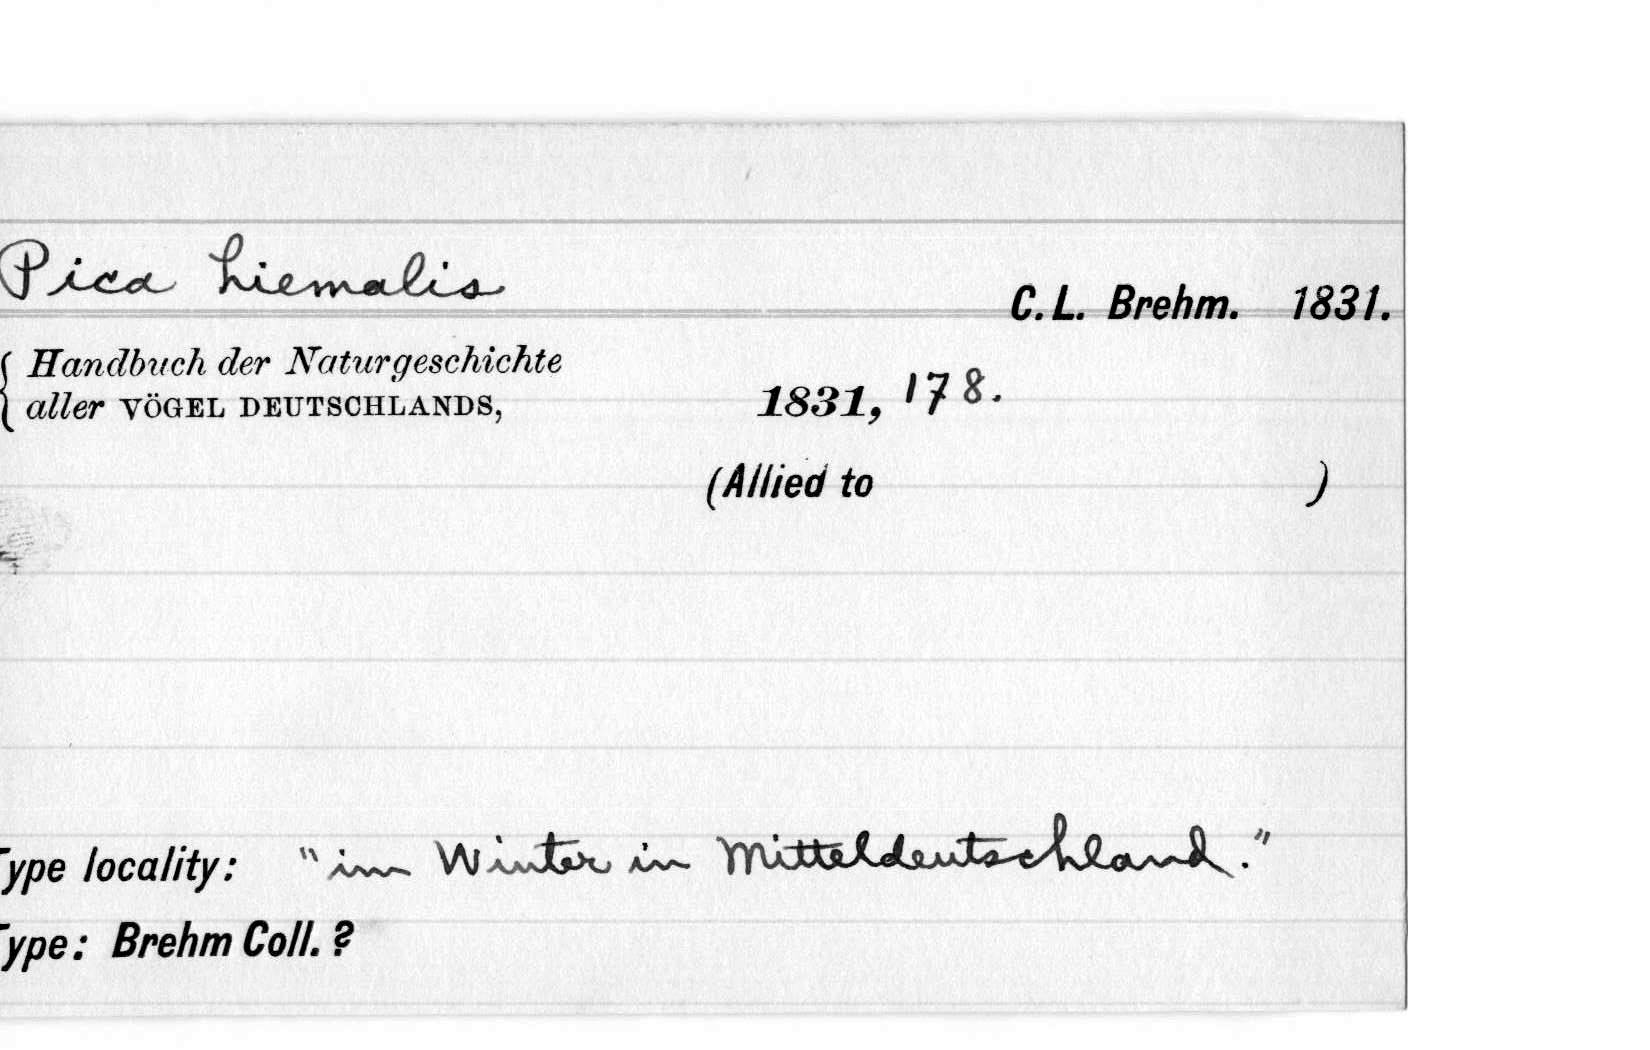 Pica hiemalis
C. L. Brehm. 1831.
Handbuch der Naturgeschichte
aller VÖGEL DEUTSCHLANDS, 1831, 178.
(Allied to )
Type locality: "im Winter in Mitteldeutschland."
Type: Brehm Coll. ?